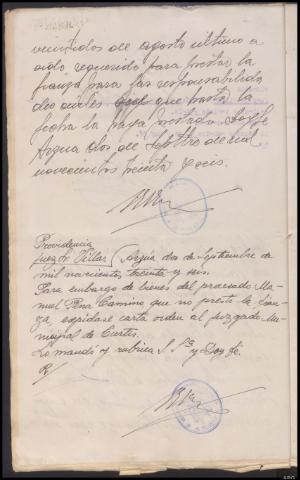 veintidos de agosto último a
sido requerido para prestar la
fianza para las responsabilida
des civiles que hasta la
fecha la haya prestado. Doy fe
Arzua dos de Septbre de mil
novecientos treinta y seis.
Providencia
Juez Sr. Villar Arzua, dos de Septiembre de
mil novecientos treinta y seis.
Para embargo de bienes del procesado Ma-
nuel Pena Camino que no presta la fian-
za, expidase carta orden al juzgado mu-
nicipal de Curtis.
Lo mandó y rubrica S Sª y Doy fe.